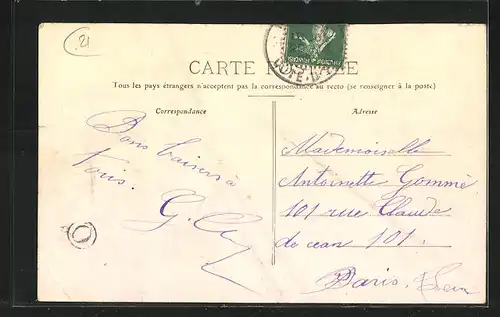 21
CARTE
Tous les pays étrangers n'acceptent pas la correspondance au recto (se renseigner à la poste)
Correspondance
Adresse
Bons baisers à
Tous.
Mademoiselle
Antoinette Gommé
101 rue Claude
de cean 101.
Paris.